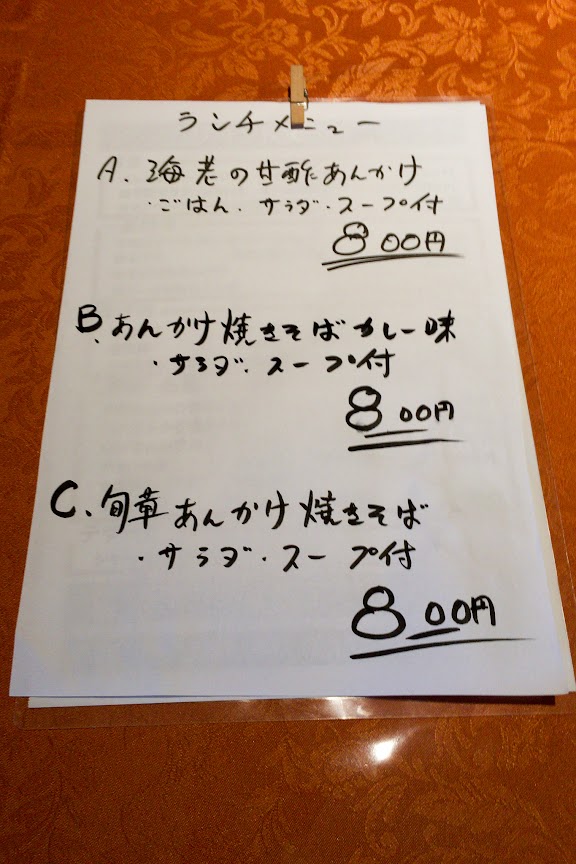 ランチメニュー
A. 海老の甘酢あんかけ
・ごはん・サラダ・スープ付
800円
B. あんかけ焼きそばカレー味
・サラダ・スープ付
800円
C. 旬章あんかけ焼きそば
・サラダ・スープ付
800円